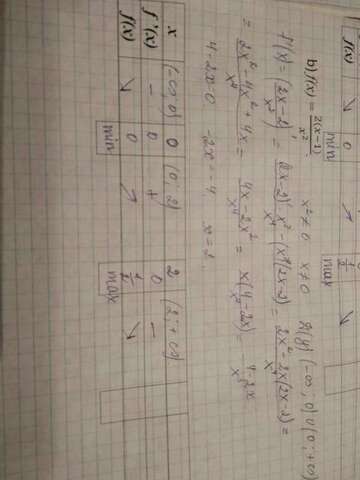 f(x) ↘ 0 ↗ 1/2 ↘
min max
b) f(x) = 2(x-1)/x²; x² ≠ 0 x ≠ 0 (-∞; 0) ∪ (0; +∞)
f'(x) = (2x-2/x²)' = (2x-2)'·x² - (x²)'(2x-2)/x⁴ = 2x² - 2x(2x-2)/x⁴ =
= 2x² - 4x² + 4x/x⁴ = 4x - 2x²/x⁴ = x(4-2x)/x⁴ = 4-2x/x³
4-2x=0 -2x=-4 x=2.
x (-∞; 0) 0 (0; 2) 2 (2; +∞)
f'(x) - 0 + 0 -
f(x) ↘ 0 ↗ 1/2 ↘
min max